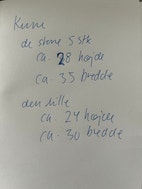 Kurve
de store 5 stk
ca. 28 højde
ca. 35 bredde
den lille
ca. 24 højde
ca. 30 bredde